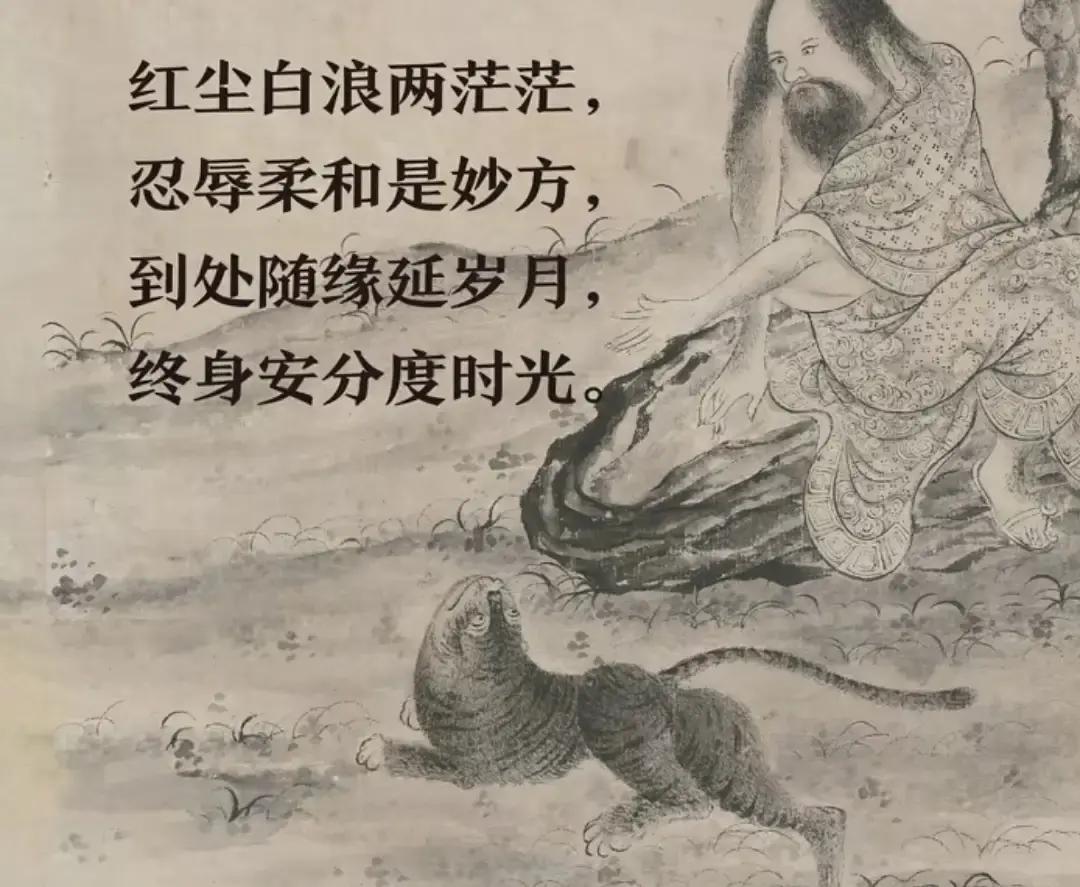 红尘白浪两茫茫，
忍辱柔和是妙方，
到处随缘延岁月，
终身安分度时光。